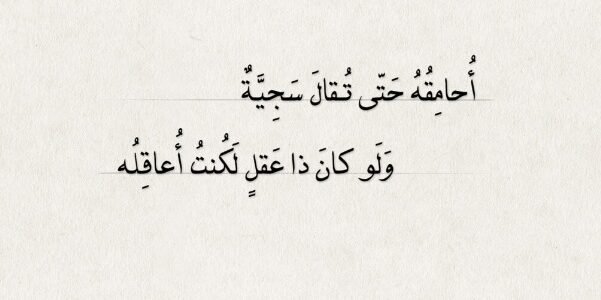 أُحامِقُهُ حَتّى تُقالَ سَجِيَّةٌ
وَلَو كانَ ذا عَقلٍ لَكُنتُ أُعاقِلُه